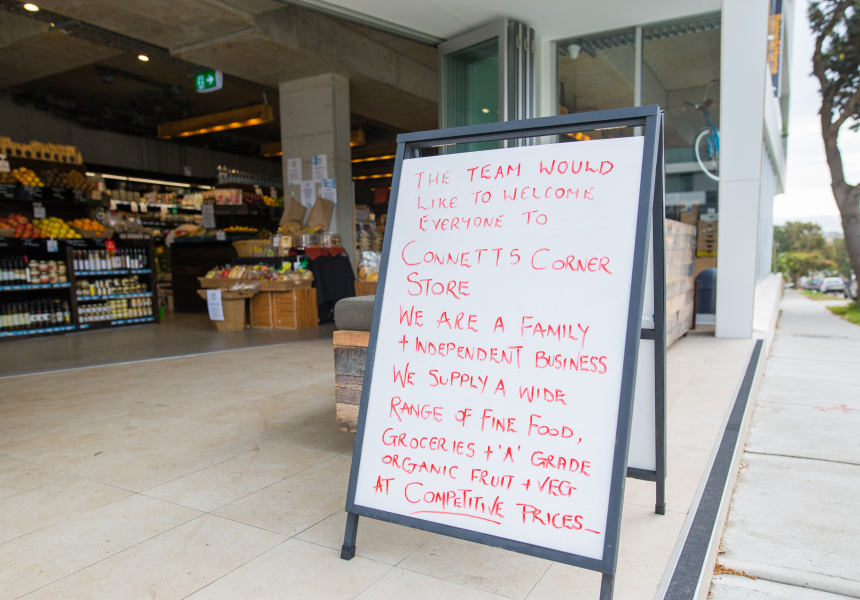 THE TEAM WOULD
LIKE TO WELCOME
EVERYONE TO
CONNETTS CORNER
STORE
WE ARE A FAMILY
+ INDEPENDENT BUSINESS
WE SUPPLY A WIDE
RANGE OF FINE FOOD,
GROCERIES + 'A' GRADE
ORGANIC FRUIT + VEG
AT COMPETITIVE PRICES_